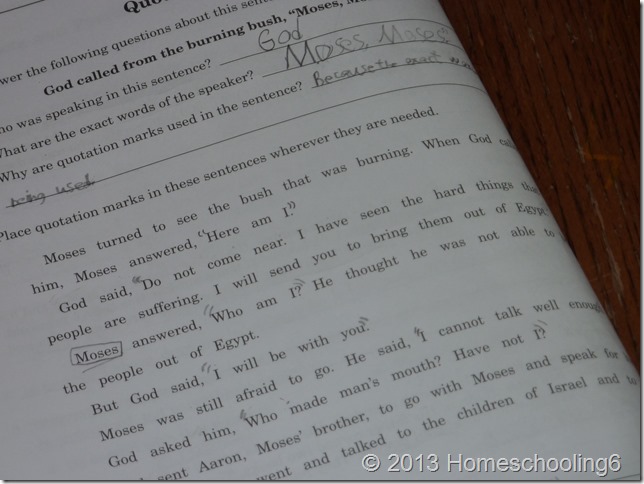 Quo
wer the following questions about this sent
God called from the burning bush, “Moses, Mo
ho was speaking in this sentence? God
What are the exact words of the speaker? Moses, Moses
Why are quotation marks used in the sentence? Because the exact
being used
Place quotation marks in these sentences wherever they are needed.
Moses turned to see the bush that was burning. When God call
him, Moses answered, “Here am I.”
God said, “Do not come near. I have seen the hard things tha
people are suffering. I will send you to bring them out of Egypt.
Moses answered, “Who am I?” He thought he was not able to
the people out of Egypt.
But God said, “I will be with you.”
Moses was still afraid to go. He said, “I cannot talk well enoug
God asked him, “Who made man’s mouth? Have not I?”
sent Aaron, Moses’ brother, to go with Moses and speak for
went and talked to the children of Israel and to
© 2013 Homeschooling6